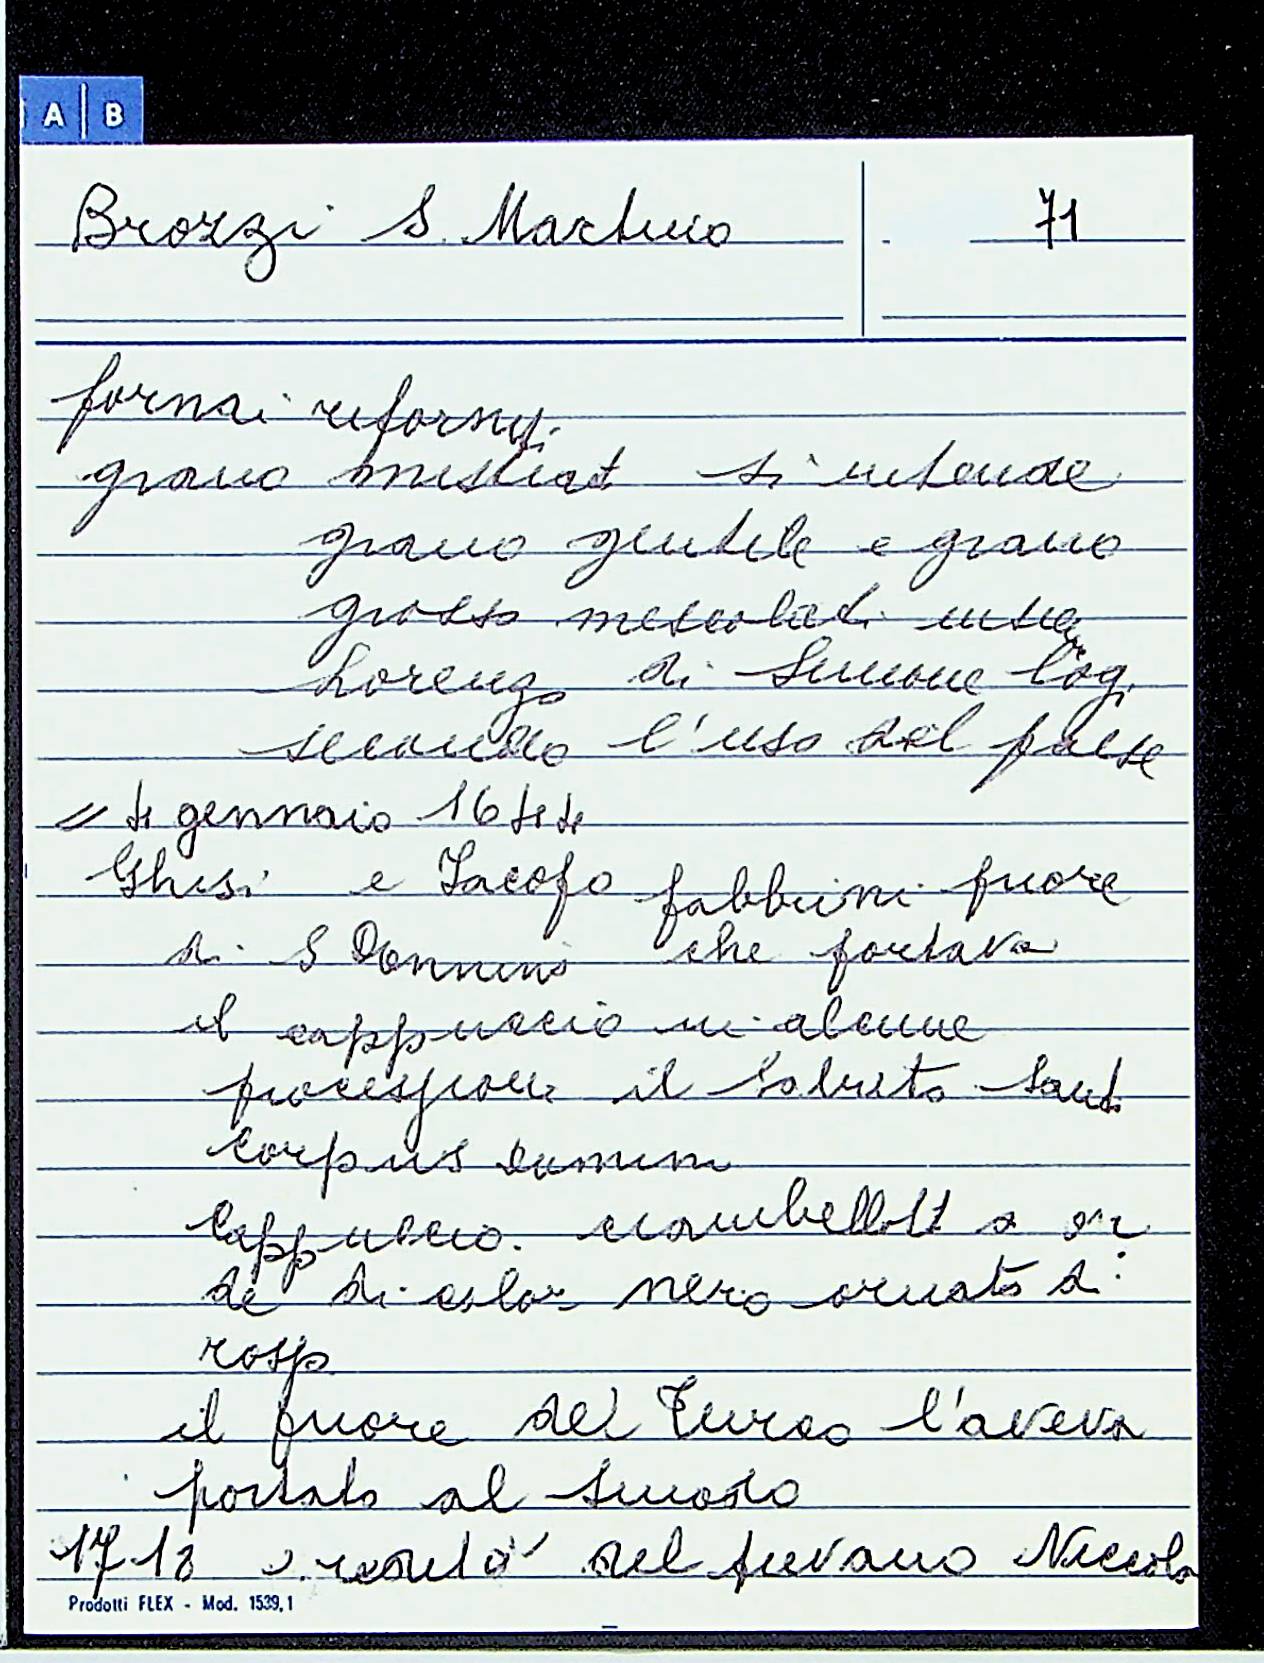 A B
Brozzi S. Martino
71
fornai
grano mistiat si intende
grano gentile e grano
grosso mescolati
Lorenzo di Simone
secondo l'uso del paese
4 gennaio 1644
Ghisi e Jacopo fabbrini priore
di S Donnino che portava
il cappuccio in alcune
processioni il Sabato Santo
Corpus Domini
Cappuccio. ciambellott a on
de di color nero ornato di
il priore del l'aveva
portato al Sinodo
1718 eredità del pievano Niccolo
Prodotti FLEX - Mod. 1539,1